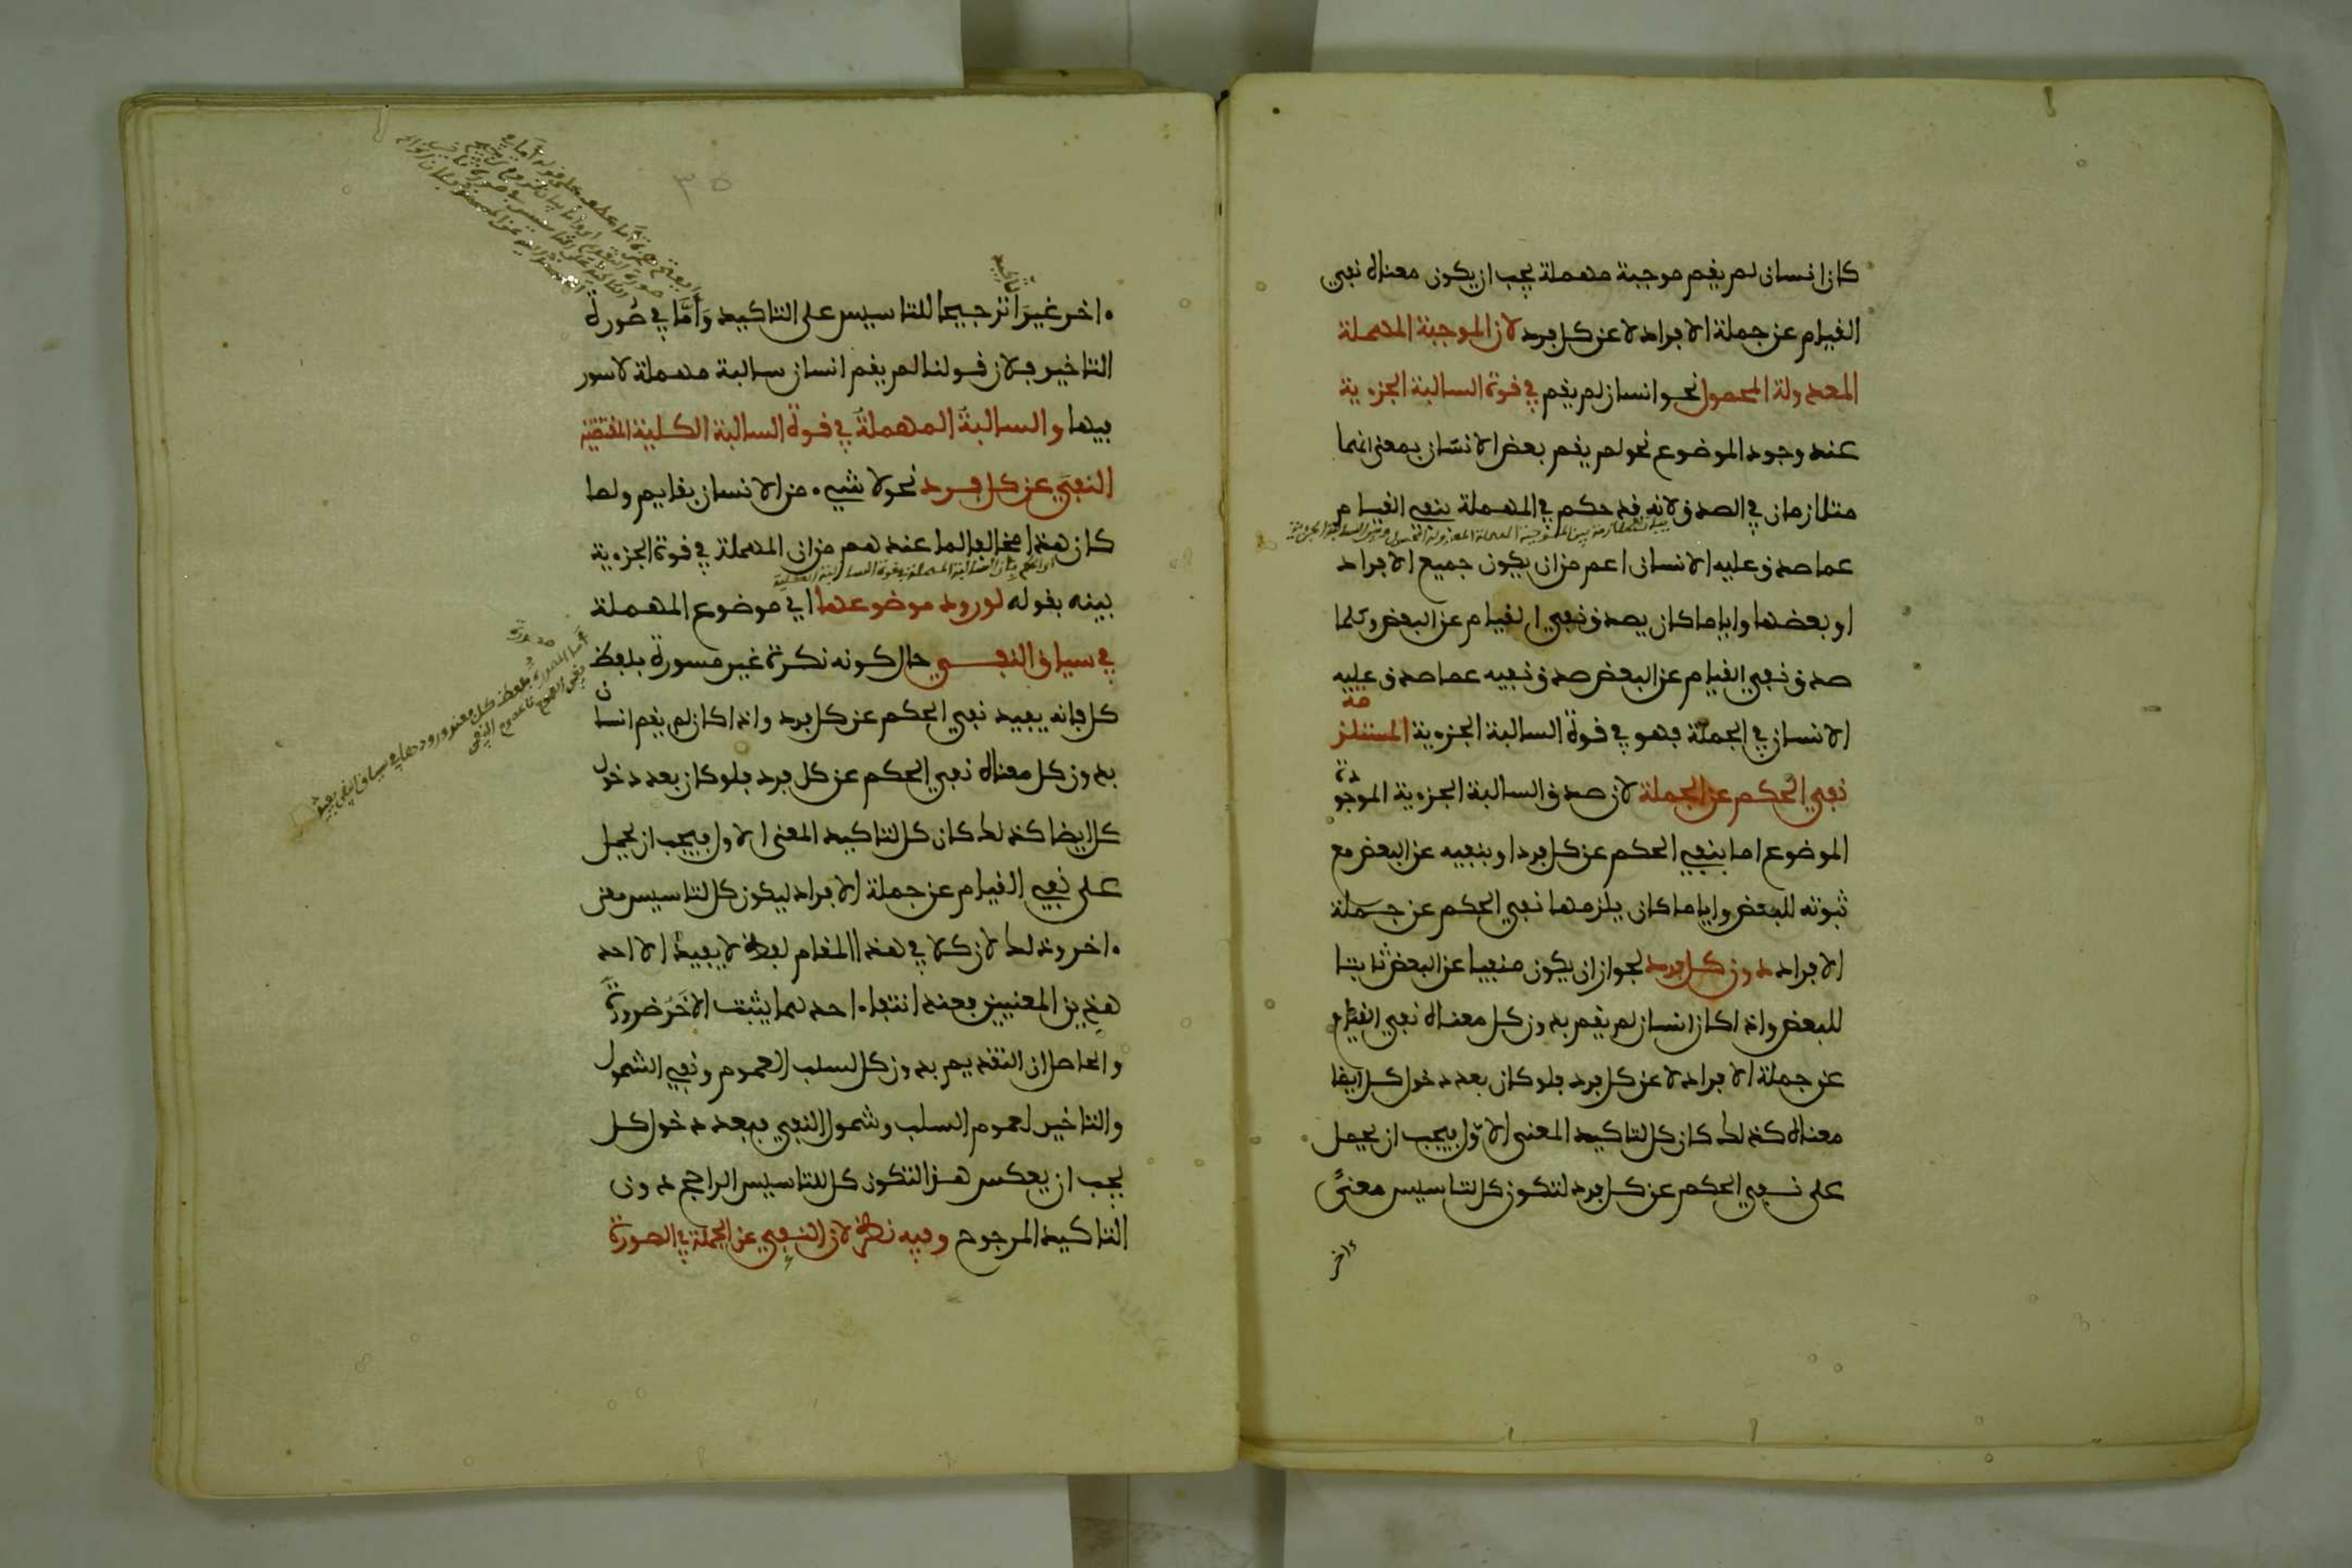 كان انسان لم يقم موجبة مهملة يجب ان يكون معناه نفي
القيام عن جملة الافراد لا عن كل فرد لان الموجبة المهملة
المعدولة المحمول نحو انسان لم يقم في قوة السالبة الجزءية
عند وجود الموضوع نحو لم يقم بعض الانسان بمعنى انهما
متلازمان في الصدق لانه قد حكم في المهملة بنفي القيام
بيان الملازمة بين الموجبة المهملة المعدولة المحمول وبين السالبة الجزءية
عما صدق عليه الانسان اعم من ان يكون جميع الافراد
او بعضها واياما كان يصدق نفي القيام عن البعض وكلما
صدق نفي القيام عن البعض صدق نفيه عما صدق عليه
الانسان في الجملة فهو في قوة السالبة الجزءية المستلزمة
نفي الحكم عن الجملة لان صدق السالبة الجزءية الموجودة
الموضوع اما بنفي الحكم عن كل فرد او بنفيه عن البعض مع
ثبوته للبعض واياما كان يلزمها نفي الحكم عن جملة
الافراد دون كل فرد لجواز ان يكون منفيا عن البعض ثابتا
للبعض واذا كان انسان لم يقم بدون كل معناه نفي القيام
عن جملة الافراد لا عن كل فرد فلو كان بعد دخول كل ايضا
معناه كذلك كان كل لتاكيد المعنى الاول فيجب ان يحمل
على نفي الحكم عن كل فرد لتكون كل لتاسيس معنى
ءاخر
٣٥
ءاخر غير ترجيحا للتاسيس على التاكيد واما في صورة
التاخير فلان قولنا لم يقم انسان سالبة مهملة لا سور
فيها والسالبة المهملة في قوة السالبة الكلية المقتضية
النفي عن كل فرد نحو لا شيء من الانسان بقايم ولما
كان هذا مخالفا لما عندهم من ان المهملة في قوة الجزءية
بينه بقوله لورود موضوعها اي موضوع المهملة
في سياق النفي حال كونه نكرة غير مسورة بلفظ
كل فانه يفيد نفي الحكم عن كل فرد واذا كان لم يقم انسان
بدون كل معناه نفي الحكم عن كل فرد فلو كان بعد دخول
كل ايضا كذلك كان كل لتاكيد المعنى الاول فيجب ان يحمل
على نفي القيام عن جملة الافراد ليكون كل لتاسيس معنى
ءاخر وذلك لان كلا في هذا المقام لفظ لا يفيد الا احد
هذين المعنيين فعند انتفاء احدهما يثبت الاخر ضرورة
والحاصل ان التقديم بدون كل لسلب العموم ونفي الشمول
والتاخير لعموم السلب وشمول النفي فبعد دخول كل
يجب ان يعكس هذا لتكون كل للتاسيس الراجح دون
التاكيد المرجوح وفيه نظر لان النفي عن الجملة في الصورة